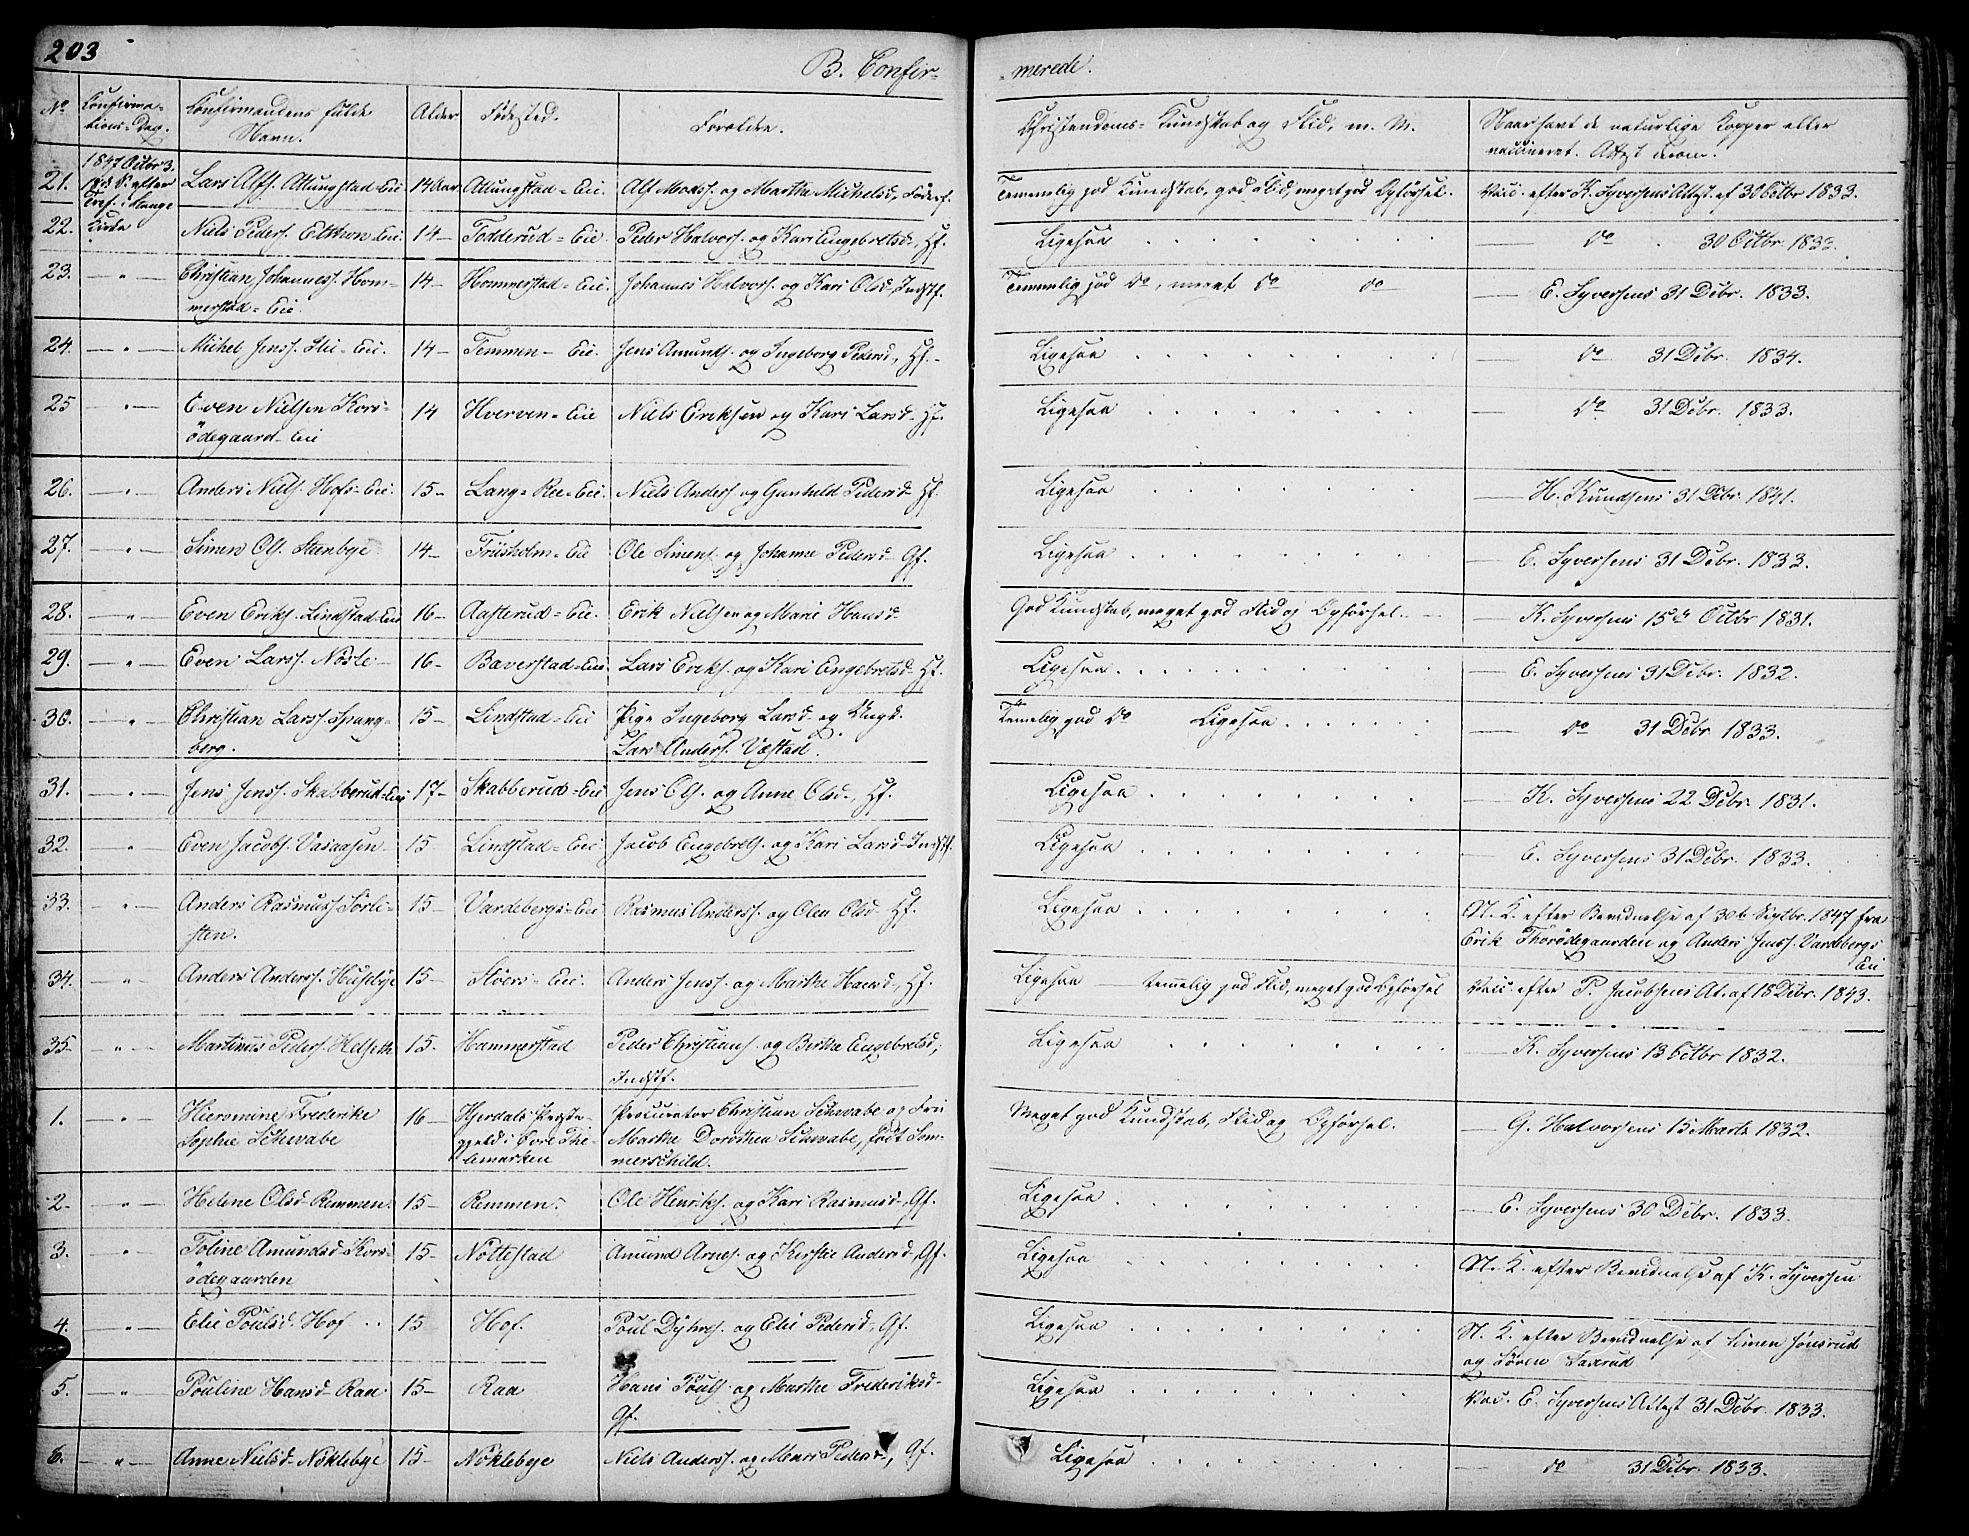 203
B. Confir-
-merede.
No
Confirma-
tions-Dag.
Confirmandens fulde
Navn.
Alder
Fødested.
Forældre.
Christendoms-Kundskab og Flid, m. M.
Naar havt de naturlige Kopper eller
vaccineret. Attest derom.
1847 Octbr 3.
18de S. efter
Tref. i Stange
Kirke
21. Lars Alfs. Allungstad-Eie 14 Aar Allungstad-Eie. Alf Madss. og Marthe Mickelsd, Føderf. Temmelig god Kundskab, god Flid, meget god Opførsel. Vacc. efter K. Syversens Attest af 30 Octbr 1833.
22. Niels Peders. Elstion-Eie 14- Fodderud-Eie. Peder Halvors. og Kari Engebretsd, Hf. Ligesaa do 30 Octbr. 1833.
23. -"- Christian Johanness. Hom- 14- Hommerstad-Eie. Johannes Halvors. og Kari Olsd, Indstf. Temmelig god do, meget do do E. Syversens 31 Debr. 1833.
merstad-Eie.
24. -"- Mickel Jenss. Lie-Eie. 14- Temmen-Eie. Jens Amunds. og Ingeborg Pedersd, Hf. Ligesaa do 31 Debr. 1834.
25 -"- Even Nielsen Kors- 14 Hverven-Eie Niels Eriksen og Kari Larsd- Hf. Ligesaa do 31 Debr. 1833.
ødegaard-Eie
26. -"- Anders Niels. Hofs-Eie. 15- Lang-Ree-Eie Niels Anders. og Gunhild Pedersd- Hf. Ligesaa H. Knudsens 31 Debr. 1841.
27. -"- Simen Ols. Steenbye 14- Friisholm-Eie Ole Simens. og Johanne Pedersd- Gf. Ligesaa E. Syversens 31 Debr. 1833.
28. -"- Even Eriks. Lindstad-Eie 16- Aasterud-Eie. Erik Nielsen og Marie Hansd God Kundskab, meget god Flid og Opførsel. K. Syversens 15de Octbr 1831.
29. -"- Even Larss. Nøste- 16- Baverstad-Eie. Lars Eriks. og Kari Engebretsd Hf. Ligesaa E. Syversens 31 Debr. 1832.
30. -"- Christian Larss. Spang- 15- Lindstad-Eie Pige Ingeborg Larsd- og Ungd. Temelig god do Ligesaa do 31 Debr 1833.
berg. Lars Anders. Væstad.
31. " Jens Jenss. Skabberud-Eie 17- Skabberud-Eie Jens Ols. og Anne Olsd-, Hf. Ligesaa K. Syversens 22 Debr. 1831.
32. " Even Jacobs. Vasaasen 15 Lindstad-Eie. Jacob Engebrets. og Kari Larsd- Indstf. Ligesaa E. Syversens 31 Debr. 1833.
33. -"- Anders Rasmuss. Sørli- 15- Vardebergs-Eie Rasmus Anderss. og Olea Olsd- Hf. Ligesaa N. K. efter Bevidnelse af 30te Septbr. 1847 fra
sten. Erik Thorødegaarden og Anders Jenss. Vardebergs
Eie
34. -"- Anders Anderss. Huseby 15- Støers-Eie. Anders Jenss. og Marthe Hansd-, Hf. Ligesaa - temmelig god Flid, meget god Opførsel Vacc. efter P. Jacobsens At. af 18 Debr. 1843.
35 -"- Martinus Peders. Helseth 15. Hammerstad Peder Christians. og Berthe Engebretsd, Ligesaa K. Syversens 13 Octbr 1832.
Indstf.
1. -"- Hieronine Frederike 16- Hjerdals Præste- Procurator Christian Schwabe og Frue Meget god Kundskab, Flid og Opførsel. G. Halvorsens 15 Marts 1832.
Sophie Schwabe gjeld i Øvre Thel- Marthe Dorothea Schwabe, født Som-
lemarken merschild.
2. -"- Helene Olsd- Remmen. 15- Remmen. Ole Henriks. og Kari Rasmusd- Gf. Ligesaa E. Syversens 30 Debr. 1833.
3. -"- Toline Amundsd. Kors- 15- Nøttestad Amund Arnes. og Kirstie Andersd, Gf. Ligesaa N. K. efter Bevidnelse af K. Syversen
ødegaarden
4. -"- Elie Poulsd. Hof 15 Hof. Poul Dyhres. og Elie Pedersd- Gf. Ligesaa N. K. efter Bevidnelse af Simen Jønsrud
og Søren Saxrud
5. -"- Pouline Hansd- Raa 15- Raa Hans Pouls. og Marthe Frederiksd- Ligesaa Vac. E. Syversens Attest 31 Debr. 1833.
Gf.
6. -"- Anne Nielsd- Nøklebye 15- Nøklebye Niels Anderss. og Mari Pedersd-, Gf. Ligesaa do 31 Debr. 1833.